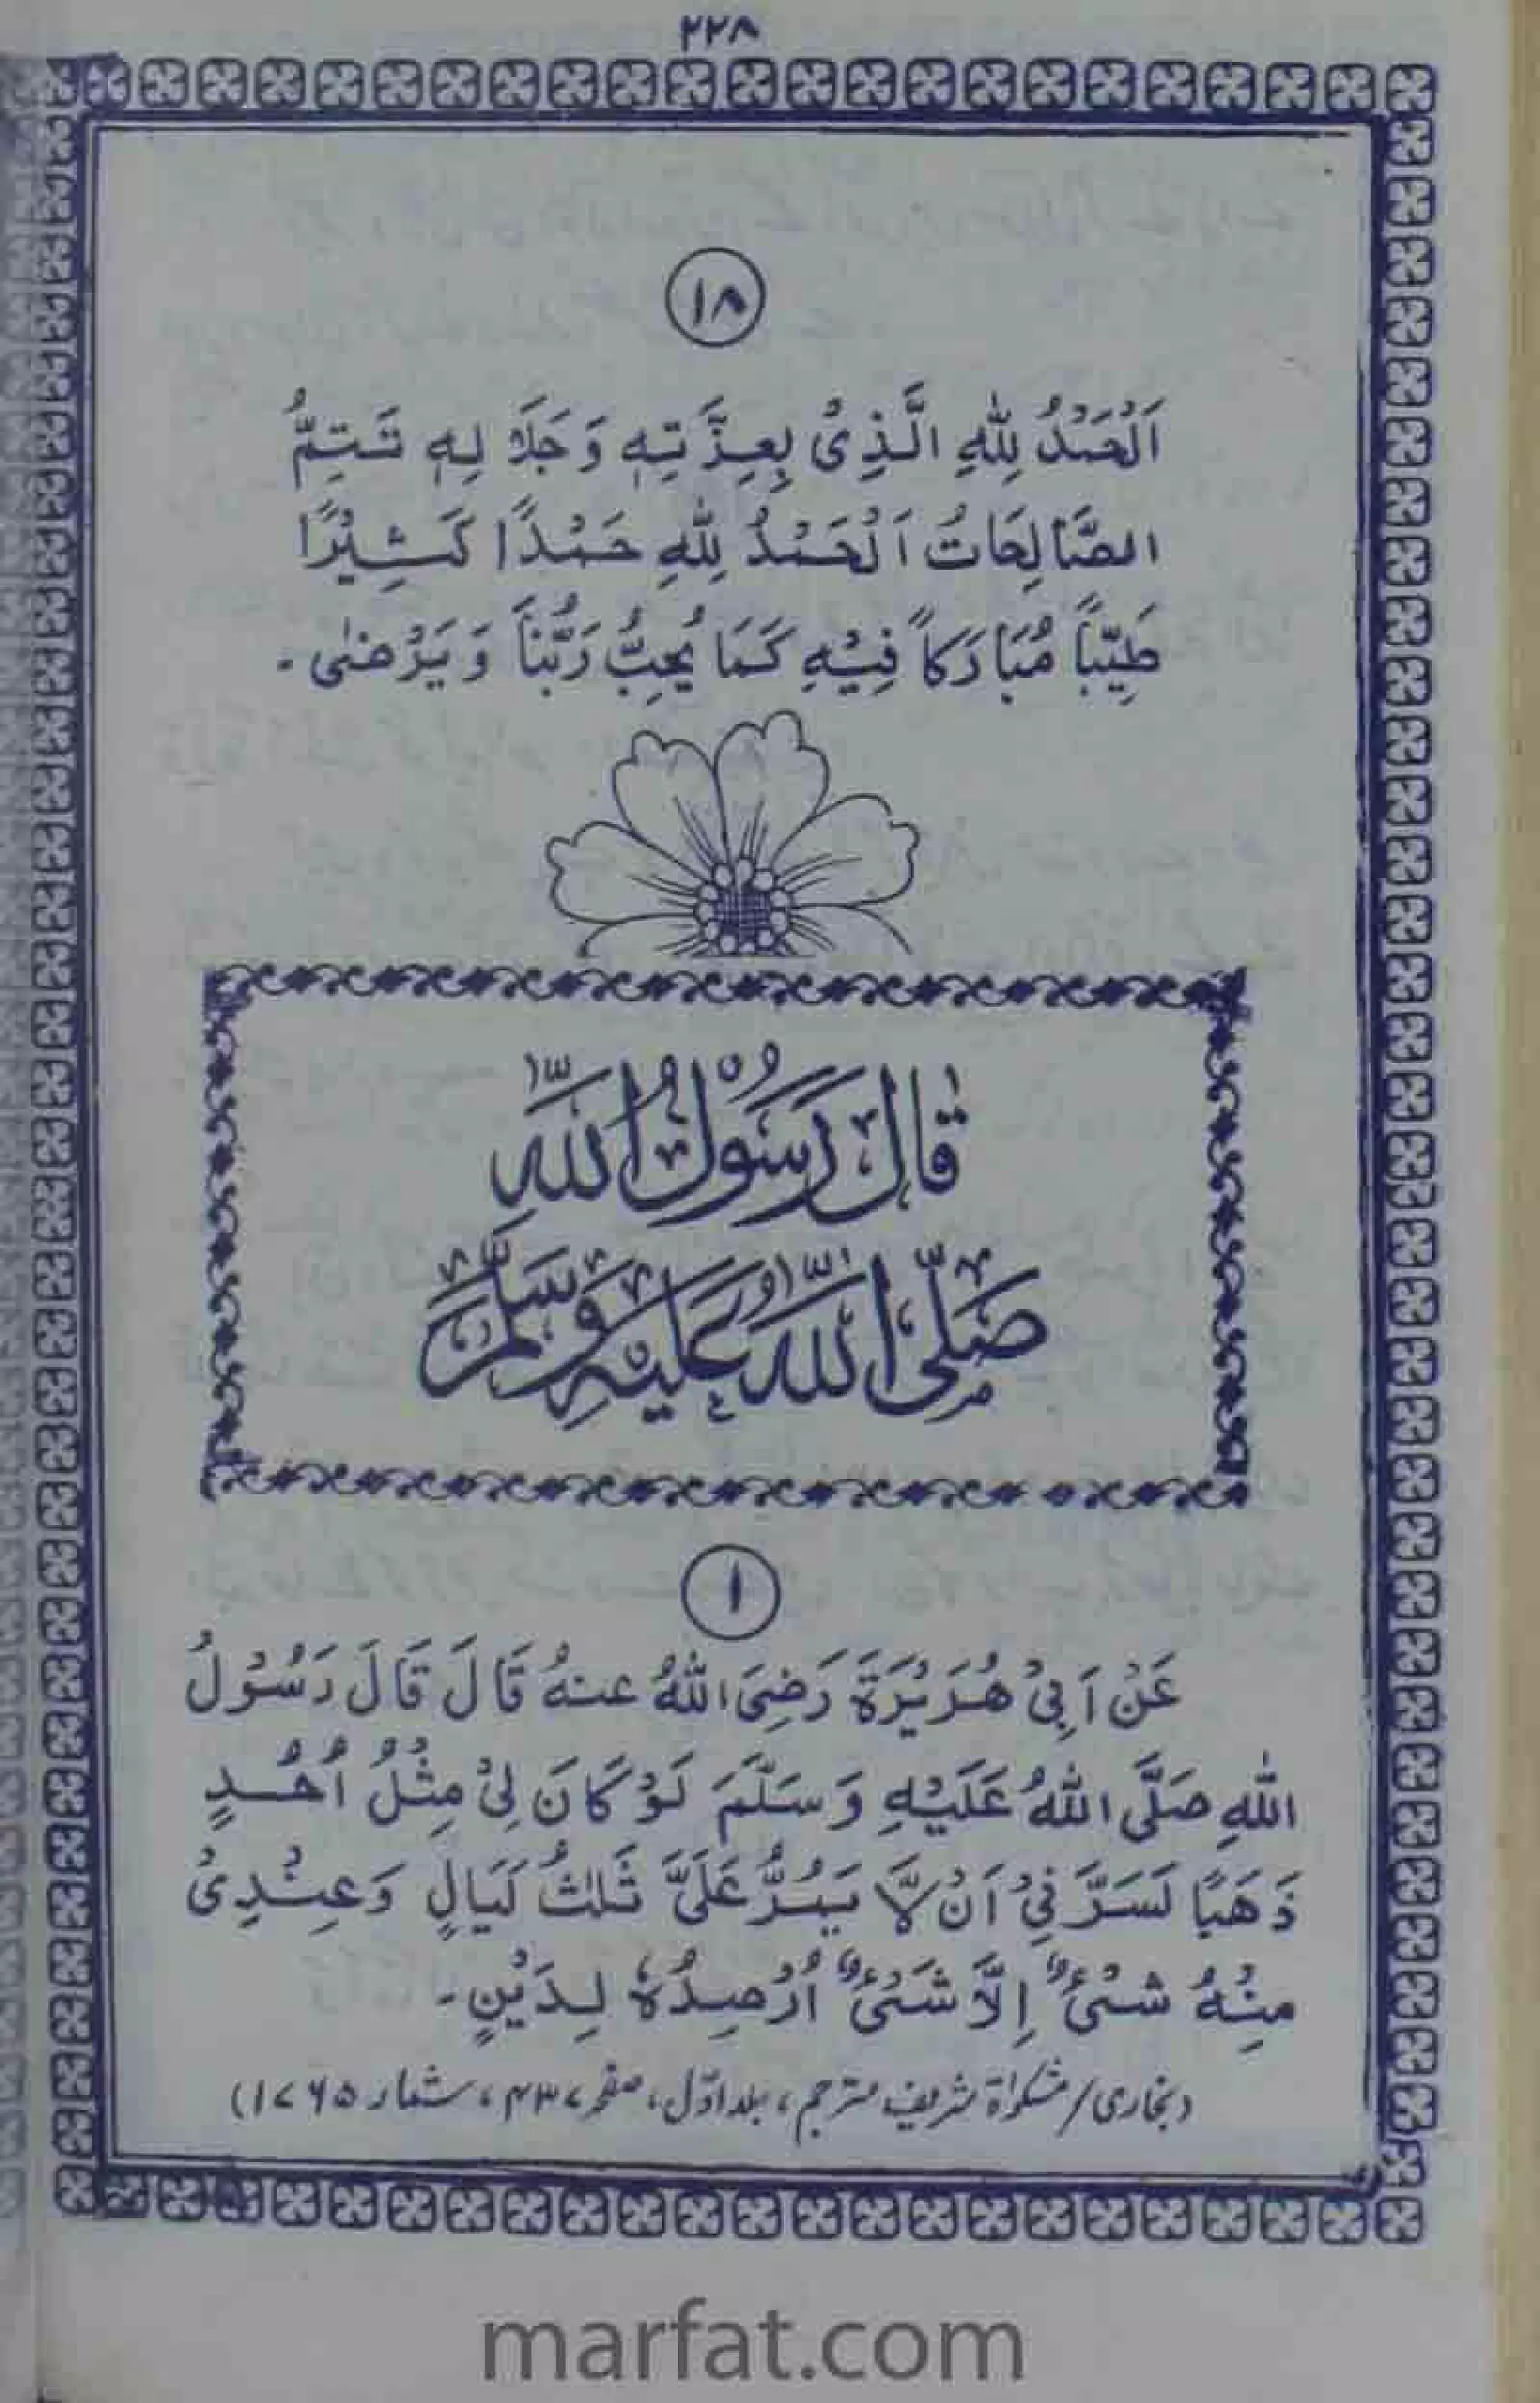 ۲۲۸
۱۸
اَلْحَمْدُ لِلّٰهِ الَّذِیْ بِعِزَّتِهٖ وَجَلَالِهٖ تَتِمُّ
الصَّالِحَاتُ اَلْحَمْدُ لِلّٰهِ حَمْدًا كَثِيْرًا
طَيِّبًا مُبَارَكًا فِيْهِ كَمَا يُحِبُّ رَبُّنَا وَيَرْضٰى۔
قَالَ رَسُوْلُ اللّٰهِ
صَلَّى اللّٰهُ عَلَيْهِ وَسَلَّمَ
۱
عَنْ اَبِیْ هُرَيْرَةَ رَضِیَ اللّٰهُ عنهُ قَالَ قَالَ رَسُوْلُ
اللّٰهِ صَلَّى اللّٰهُ عَلَيْهِ وَسَلَّمَ لَوْ كَانَ لِیْ مِثْلُ اُحُدٍ
ذَهَبًا لَسَرَّنِیْ اَنْ لَّا يَمُرَّ عَلَیَّ ثَلٰثُ لَيَالٍ وَعِنْدِیْ
مِنْهُ شَیْءٌ اِلَّا شَیْءٌ اُرْصِدُهٗ لِدَيْنٍ۔
(بخاری/مشکوٰۃ شریف مترجم، جلد اوّل، صفحہ ۴۳۷، شمار ۱۷۶۵)
marfat.com